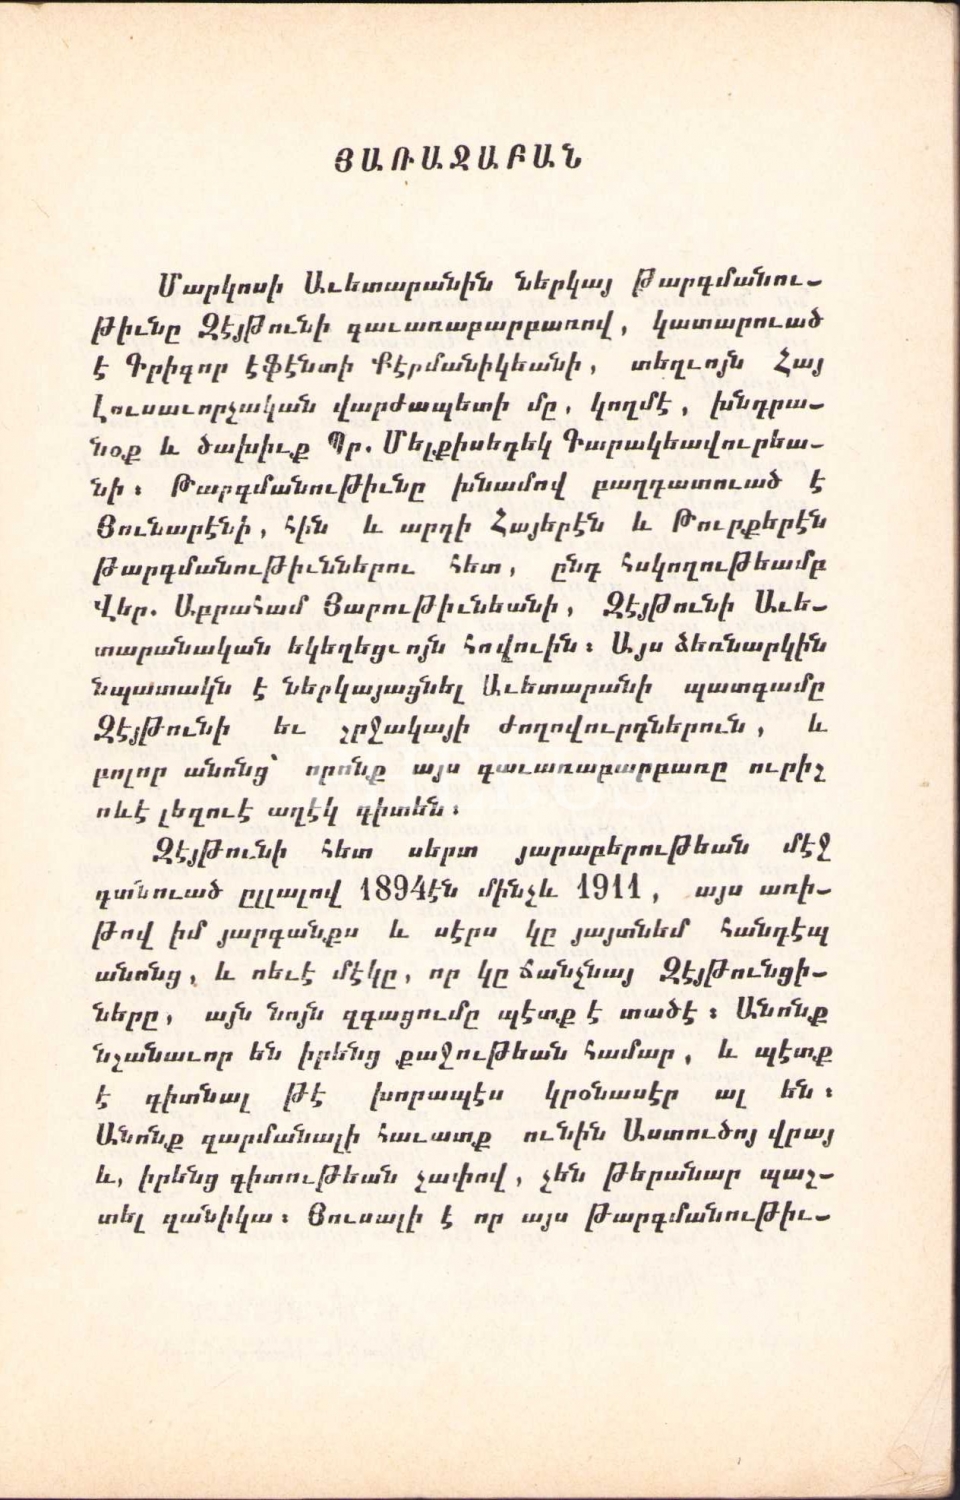 ՅԱՌԱՋԱԲԱՆ
Մարկոսի Աւետարանին ներկայ թարգմանու-
թիւնը Զէյթունի գաւառաբարբառով, կատարուած
է Գրիգոր էֆէնտի Քէրմանիկեանի, տեղւոյն Հայ
Լուսաւորչական վարժապետի մը, կողմէ, խնդրա-
նօք և ծախիւք Պր. Մելքիսեդեկ Գարակեավուրեա-
նի։ Թարգմանութիւնը խնամով բաղդատուած է
Յունարէնի, հին և արդի Հայերէն և Թուրքերէն
թարգմանութիւններու հետ, ընդ հսկողութեամբ
Վեր. Աբրահամ Յարութիւնեանի, Զէյթունի Աւե-
տարանական եկեղեցւոյն հովուին։ Այս ձեռնարկին
նպատակն է ներկայացնել Աւետարանի պատգամը
Զէյթունի եւ շրջակայի ժողովուրդներուն, և
բոլոր անոնց՝ որոնք այս գաւառաբարբառը ուրիշ
ոևէ լեզուէ աղէկ գիտեն։
Զէյթունի հետ սերտ յարաբերութեան մէջ
գտնուած ըլլալով 1894էն մինչև 1911, այս առի-
թով իմ յարգանքս և սէրս կը յայտնեմ հանդէպ
անոնց, և ոեւէ մէկը, որ կը ճանչնայ Զէյթունցի-
ները, այն նոյն զգացումը պէտք է տածէ։ Անոնք
նշանաւոր են իրենց քաջութեան համար, և պէտք
է գիտնալ թէ խորապէս կրօնասէր ալ են։
Անոնք զարմանալի հաւատք ունին Աստուծոյ վրայ
և, իրենց գիտութեան չափով, չեն թերանար պաշ-
տել զանիկա։ Յուսալի է որ այս թարգմանութիւ-